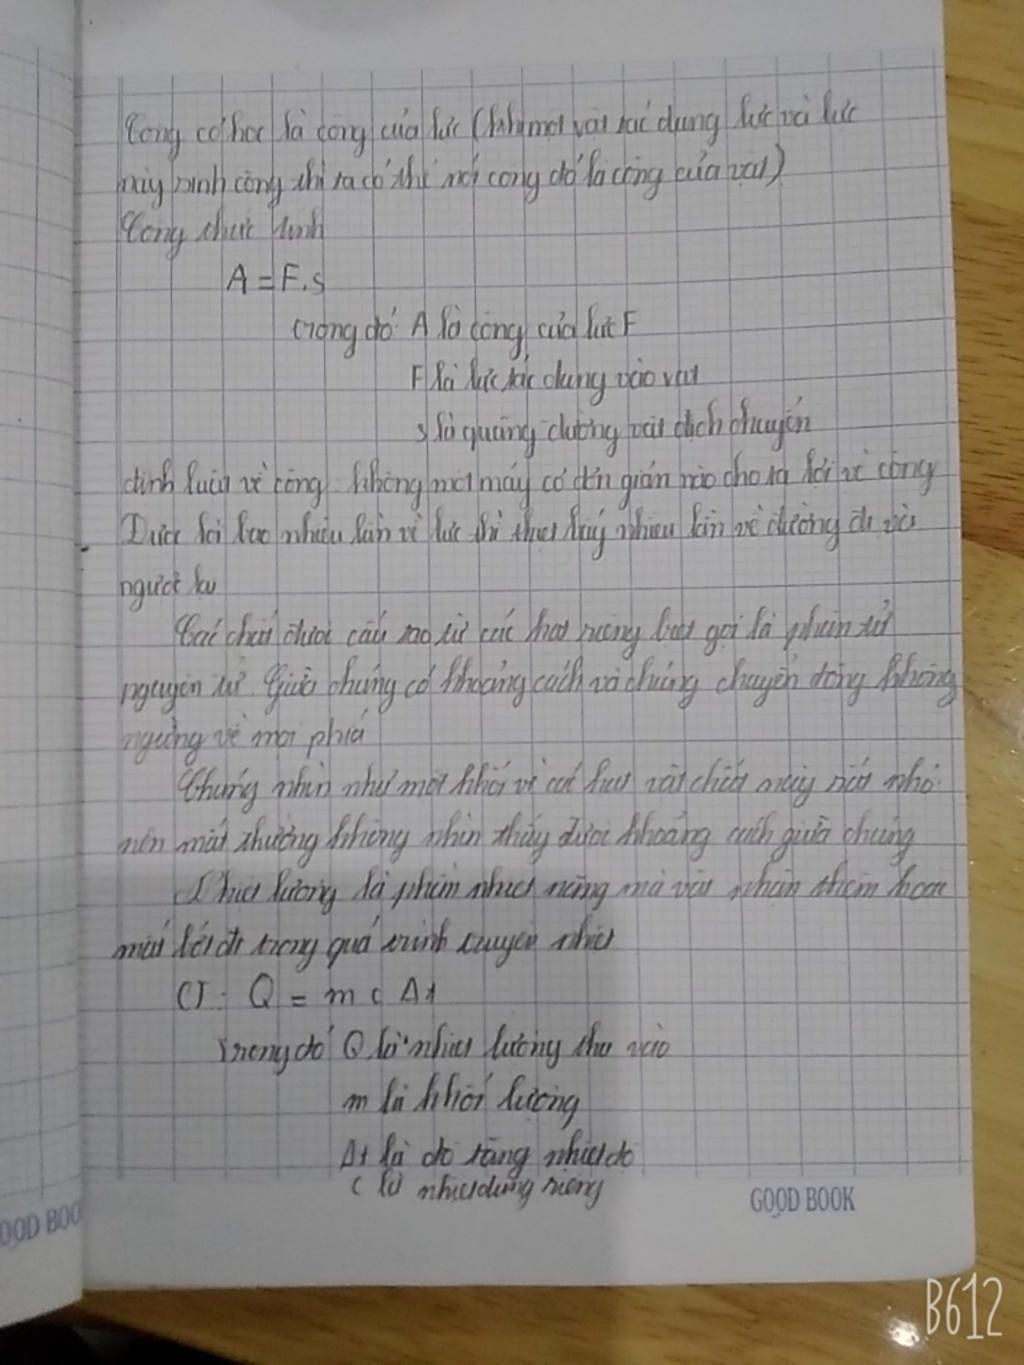 Công cơ học là công của lực (khi một vật tác dụng lực và lực
này sinh công thì ta có thể nói công đó là công của vật)
Công thức tính
A = F.s
trong đó A là công của lực F
F là lực tác dụng vào vật
s là quãng đường vật dịch chuyển
định luật về công không một máy cơ đơn giản nào cho ta lợi về công
Được lợi bao nhiêu lần về lực thì thiệt bấy nhiêu lần về đường đi và
ngược lại
Các chất được cấu tạo từ các hạt riêng biệt gọi là phân tử
nguyên tử. Giữa chúng có khoảng cách và chúng chuyển động không
ngừng về mọi phía
Chúng nhìn như một khối vì các hạt vật chất này rất nhỏ
nên mắt thường không nhìn thấy được khoảng cách giữa chúng
Nhiệt lượng là phần nhiệt năng mà vật nhận thêm hoặc
mất bớt đi trong quá trình truyền nhiệt
CT: Q = m c Δt
Trong đó Q là nhiệt lượng thu vào
m là khối lượng
Δt là độ tăng nhiệt độ
c là nhiệt dung riêng
GOOD BOOK
OOD BOO
B612